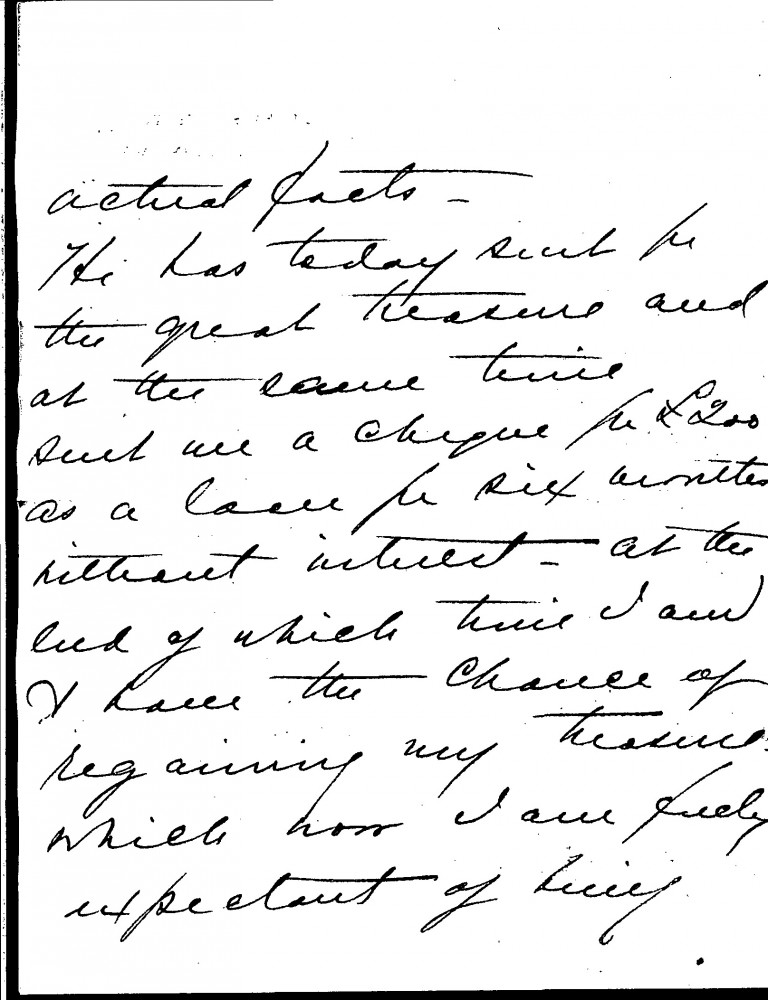 actual facts –
He has today sent for
the great treasure and
at the same time
sent me a cheque for £200
as a loan for six months
without interest – at the
end of which time I am
I have the chance of
regaining my treasure
which now I am fully
expectant of being